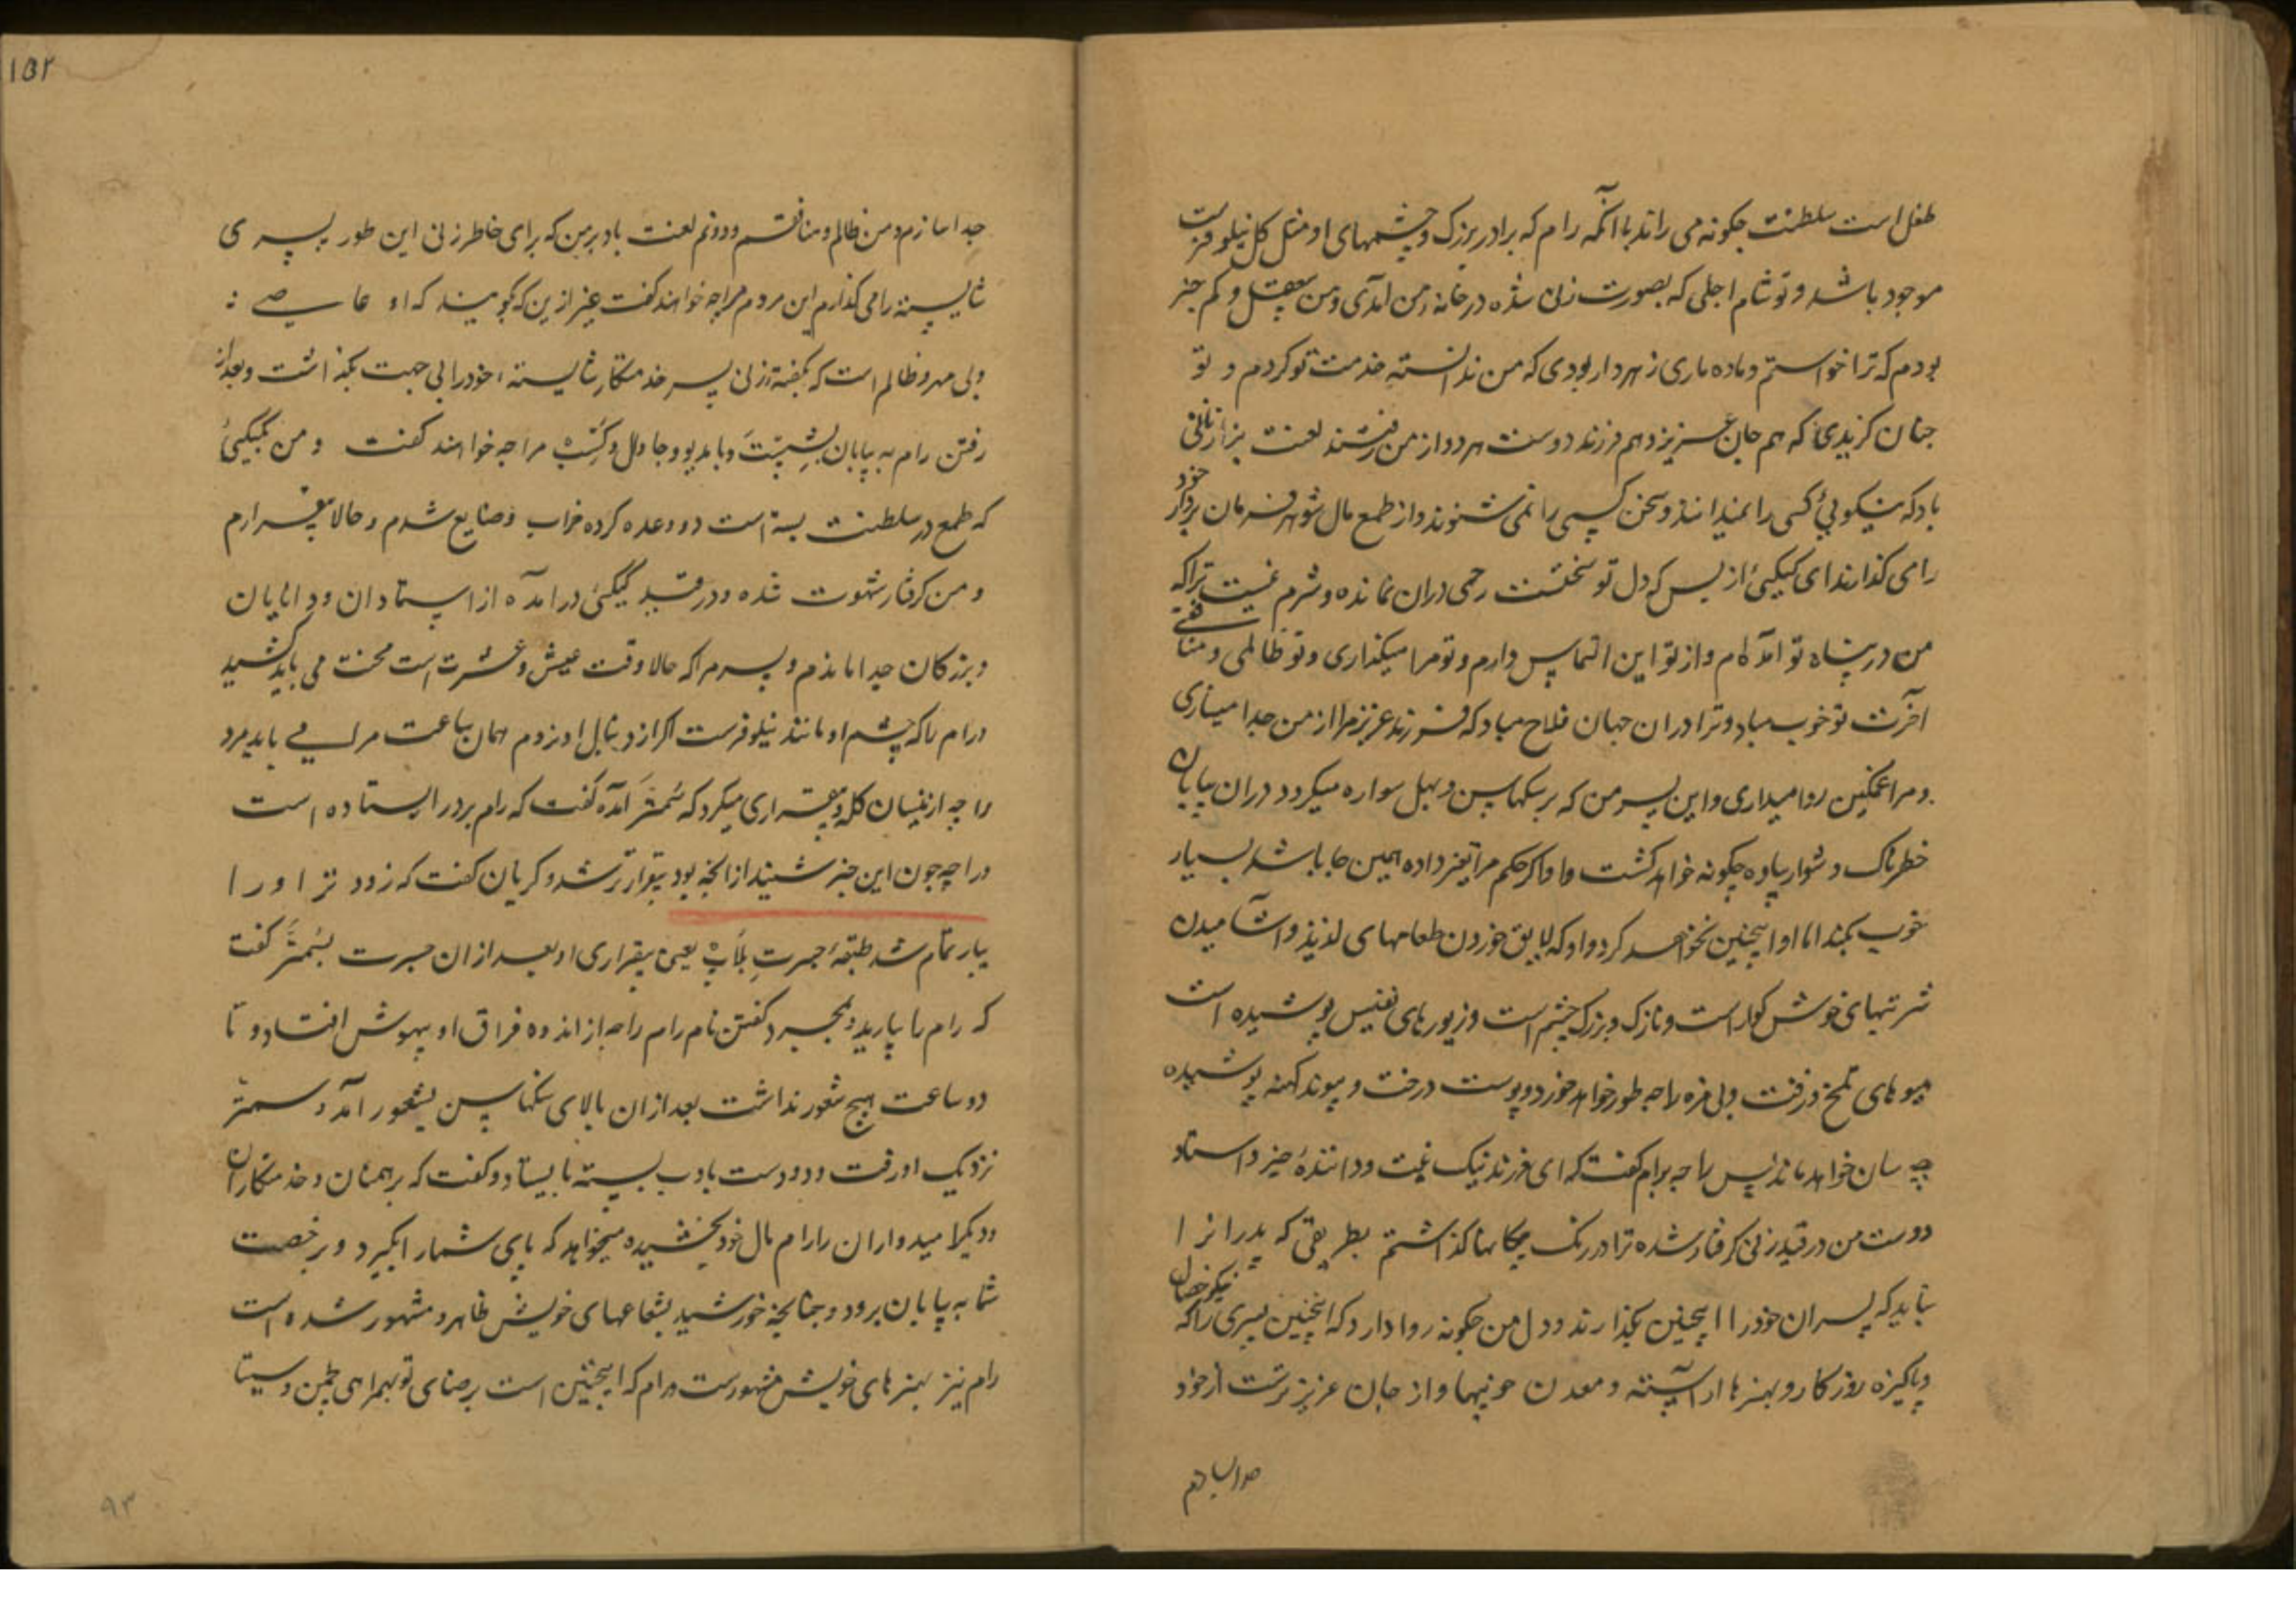 طفل است سلطنت چکونه می راند باانکه رام که برادر بزرک و چشمهای او مثل کل نیلوفرست
موجود باشد و تو شام اجلی که بصورت زن شده در خانه من آمدی و من بیعقل و کم خبر
بودم که ترا خواستم و ماده ماری زهردار بودی که من ندانسته خدمت تو کردم و تو
چنان کزیدی که هم جان عزیز و هم فرزند دوست هر دو از من رفتند لعنت بر زنانی
باد که نیکویی کسی را نمیدانند و سخن کسی را نمی شنوند و از طمع مال شوهر فرمان بردار خود
را می کذارند ای کیکیی از بس که دل تو سختست رحمی دران نمانده و شرم نیست ترا که
من در پناه تو آمده ام و از تو این التماس دارم و تو مرا میکذاری و تو ظالمی و منافقی
آخرت تو خوب مباد و ترا دران جهان فلاح مباد که فرزند عزیز مرا از من جدا میسازی
و مرا غمکین روا میداری و این پسر من که بر سکهاسن و بهل سواره میکردد دران بیابان
خطرناک دشوار پیاده چکونه خواهد کشت و اکر حکم مرا تغیر داده همین جا باشد بسیار
خوب بکند اما او اینچنین نخواهد کرد و او که لایق خوردن طعامهای لذیذ و آشامیدن
شربتهای خوش کوار است و نازک و بزرک چشم است و زیورهای نفیس پوشیده است
میوهای تلخ و زفت و بی مزه را چه طور خواهد خورد و پوست درخت و پیوند کهنه پوشیده
چه سان خواهد ماند پس راجه برام کفت که ای فرزند نیک نیت و دانندهٔ خیر و استاد
دوست من در قید زنی کرفتار شده ترا در رنک بیکانها کذاشتم بطریقی که پدرانرا
نباید که پسران خود را اینچنین بکذارند و دل من چکونه روا دارد که اینچنین پسری نیکوخصال را که
پاکیزه روزکار و بهنرها آراسته و معدن خوبیها و از جان عزیز ترست از خود
جدا سازم
جدا سازم و من ظالم و منافقم و دونم لعنت باد بر من که برای خاطر زنی این طور پسری
شایسته را می کذارم این مردم مرا چه خواهند کفت غیر ازین که کویند که او عاصی
و بی مهر و ظالم است که بکفتهٔ زن پسر خدمتکار شایستهٔ خود را بی جهت بکذاشت و بعد از
رفتن رام به بیابان بشیشت و بامدیو و جاوال و کشپ مرا چه خواهند کفت و من بکیکیی
که طمع در سلطنت بسته است دو وعده کرده خراب و ضایع شدم و حالا بیقرارم
و من کرفتار شهوت شده و در قید کیکیی درآمده از استادان و دانایان
و بزرکان جدا ماندم و پسر مرا که حالا وقت عیش و عشرت است محنت می باید کشید
و رام را که چشم او مانند نیلوفرست اکر از دنبال او نروم همان ساعت مرا می باید مرد
راجه ازینسان کله و بیقراری میکرد که سُمنتر آمده کفت که رام بر در ایستاده است
و راجه چون این خبر شنید از انچه بود بیقرارتر شد و کریان کفت که زود تر او را
بیار تمام شد طبقهٔ جسرت بلاپ یعنی بیقراری او بعد از ان جسرت بسمنتر کفت
که رام را بیارید و بمجرد کفتن نام رام راجه از اندوه فراق او بیهوش افتاد و تا
دو ساعت هیچ شعور نداشت بعد ازان بالای سنکهاسن بشعور آمد و سمنتر
نزدیک او رفت و دو دست بادب بسته بایستاد و کفت که برهمنان و خدمتکاران
و دیکر امیدواران را رام مال خود بخشیده میخواهد که پای شما را بکیرد و برخصت
شما به بیابان برود و چنانچه خورشید بشعاعهای خویش ظاهر و مشهور شده است
رام نیز بهنرهای خویش مشهورست و رام که اینچنین است برضای تو بهمراهی لچمن و سیتا
۱۵۲
۹۳